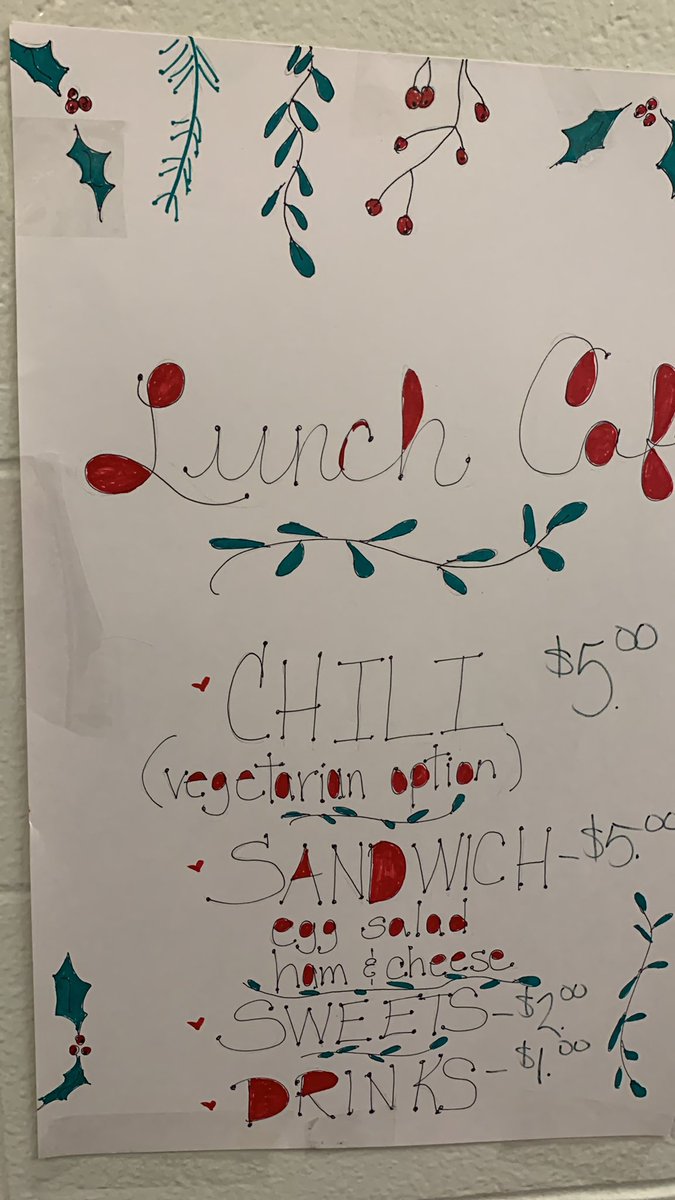 Lunch Caf
CHILI $5.00
(vegetarian option)
SANDWICH-$5.00
egg salad
ham & cheese
SWEETS-$2.00
DRINKS-$1.00